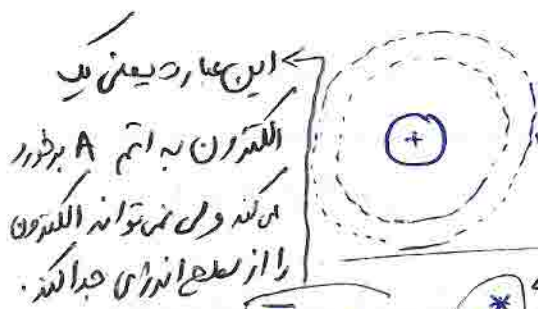 این عبارت یعنی یک
الکترون به اتم A برخورد
می‌کند ولی نمی‌تواند الکترون
را از سطح انرژی جدا کند.
+
*